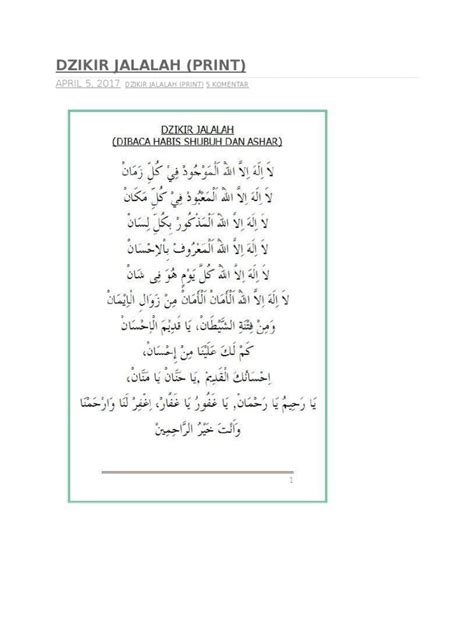 DZIKIR JALALAH (PRINT)
APRIL 5, 2017 DZIKIR JALALAH (PRINT) 5 KOMENTAR
DZIKIR JALALAH
(DIBACA HABIS SHUBUH DAN ASHAR)
لَا اِلَهَ اِلاَّ اللهُ اَلْمَوْجُودْ فِيْ كُلِّ زَمَانْ
لَا اِلَهَ اِلاَّ اللهُ اَلْمَعْبُودْ فِيْ كُلِّ مَكَانْ
لَا اِلَهَ اِلاَّ اللهُ اَلْمَذْكُورْ بِكُلِّ لِسَانْ
لَا اِلَهَ اِلاَّ اللهُ اَلْمَعْرُوفْ بِاْلاِحْسَانْ
لَا اِلَهَ اِلاَّ اللهُ كُلَّ يَوْمٍ هُوَ فِى شَانْ
لَا اِلَهَ اِلاَّ اللهُ اَلْأَمَانْ اَلْأَمَانْ مِنْ زَوَالِ الْإِيْمَانْ
وَمِنْ فِتْنَةِ الشَّيْطَانْ، يَا قَدِيْمَ الْاِحْسَانْ
كَمْ لَكَ عَلَيْنَا مِنْ إِحْسَانْ،
اِحْسَانُكَ الْقَدِيمْ ,يَا حَنَّانْ يَا مَنَّانْ،
يَا رَحِيمُ يَا رَحْمَانْ, يَا غَفُورُ يَا غَفَّارْ، اِغْفِرْ لَنَا وَارْحَمْنَا
وَاَنْتَ خَيْرُ الرَّاحِمِينْ
1